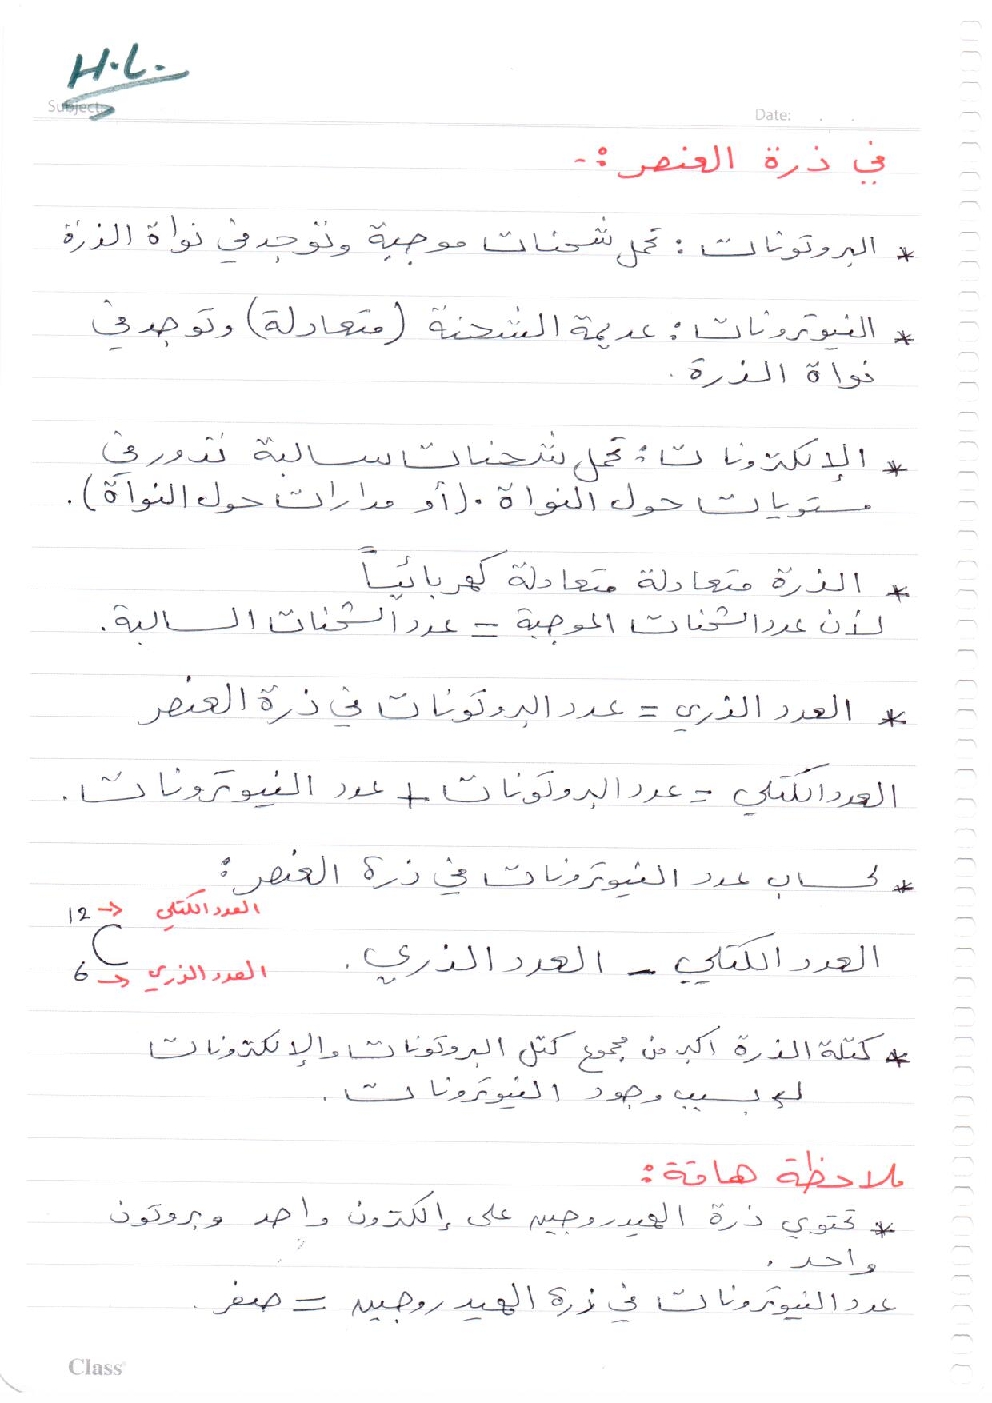 H.L.
Subject:
Date: . .
في ذرة العنصر :-
* البروتونات : تحمل شحنات موجبة وتوجد في نواة الذرة
* النيوترونات : عديمة الشحنة (متعادلة) وتوجد في
نواة الذرة .
* الإلكترونات : تحمل شحنات سالبة تدور في
مستويات حول النواة . (أو مدارات حول النواة) .
* الذرة متعادلة متعادلة كهربائياً
لأن عدد الشحنات الموجبة = عدد الشحنات السالبة .
* العدد الذري = عدد البروتونات في ذرة العنصر
العدد الكتلي = عدد البروتونات + عدد النيوترونات .
* لحساب عدد النيوترونات في ذرة العنصر :
العدد الكتلي ← 12
C
العدد الكتلي - العدد الذري .
العدد الذري ← 6
* كتلة الذرة أكبر من مجموع كتل البروتونات والإلكترونات
بسبب وجود النيوترونات .
ملاحظة هامة :
* تحتوي ذرة الهيدروجين على إلكترون واحد وبروتون
واحد .
عدد النيوترونات في ذرة الهيدروجين = صفر .
Class